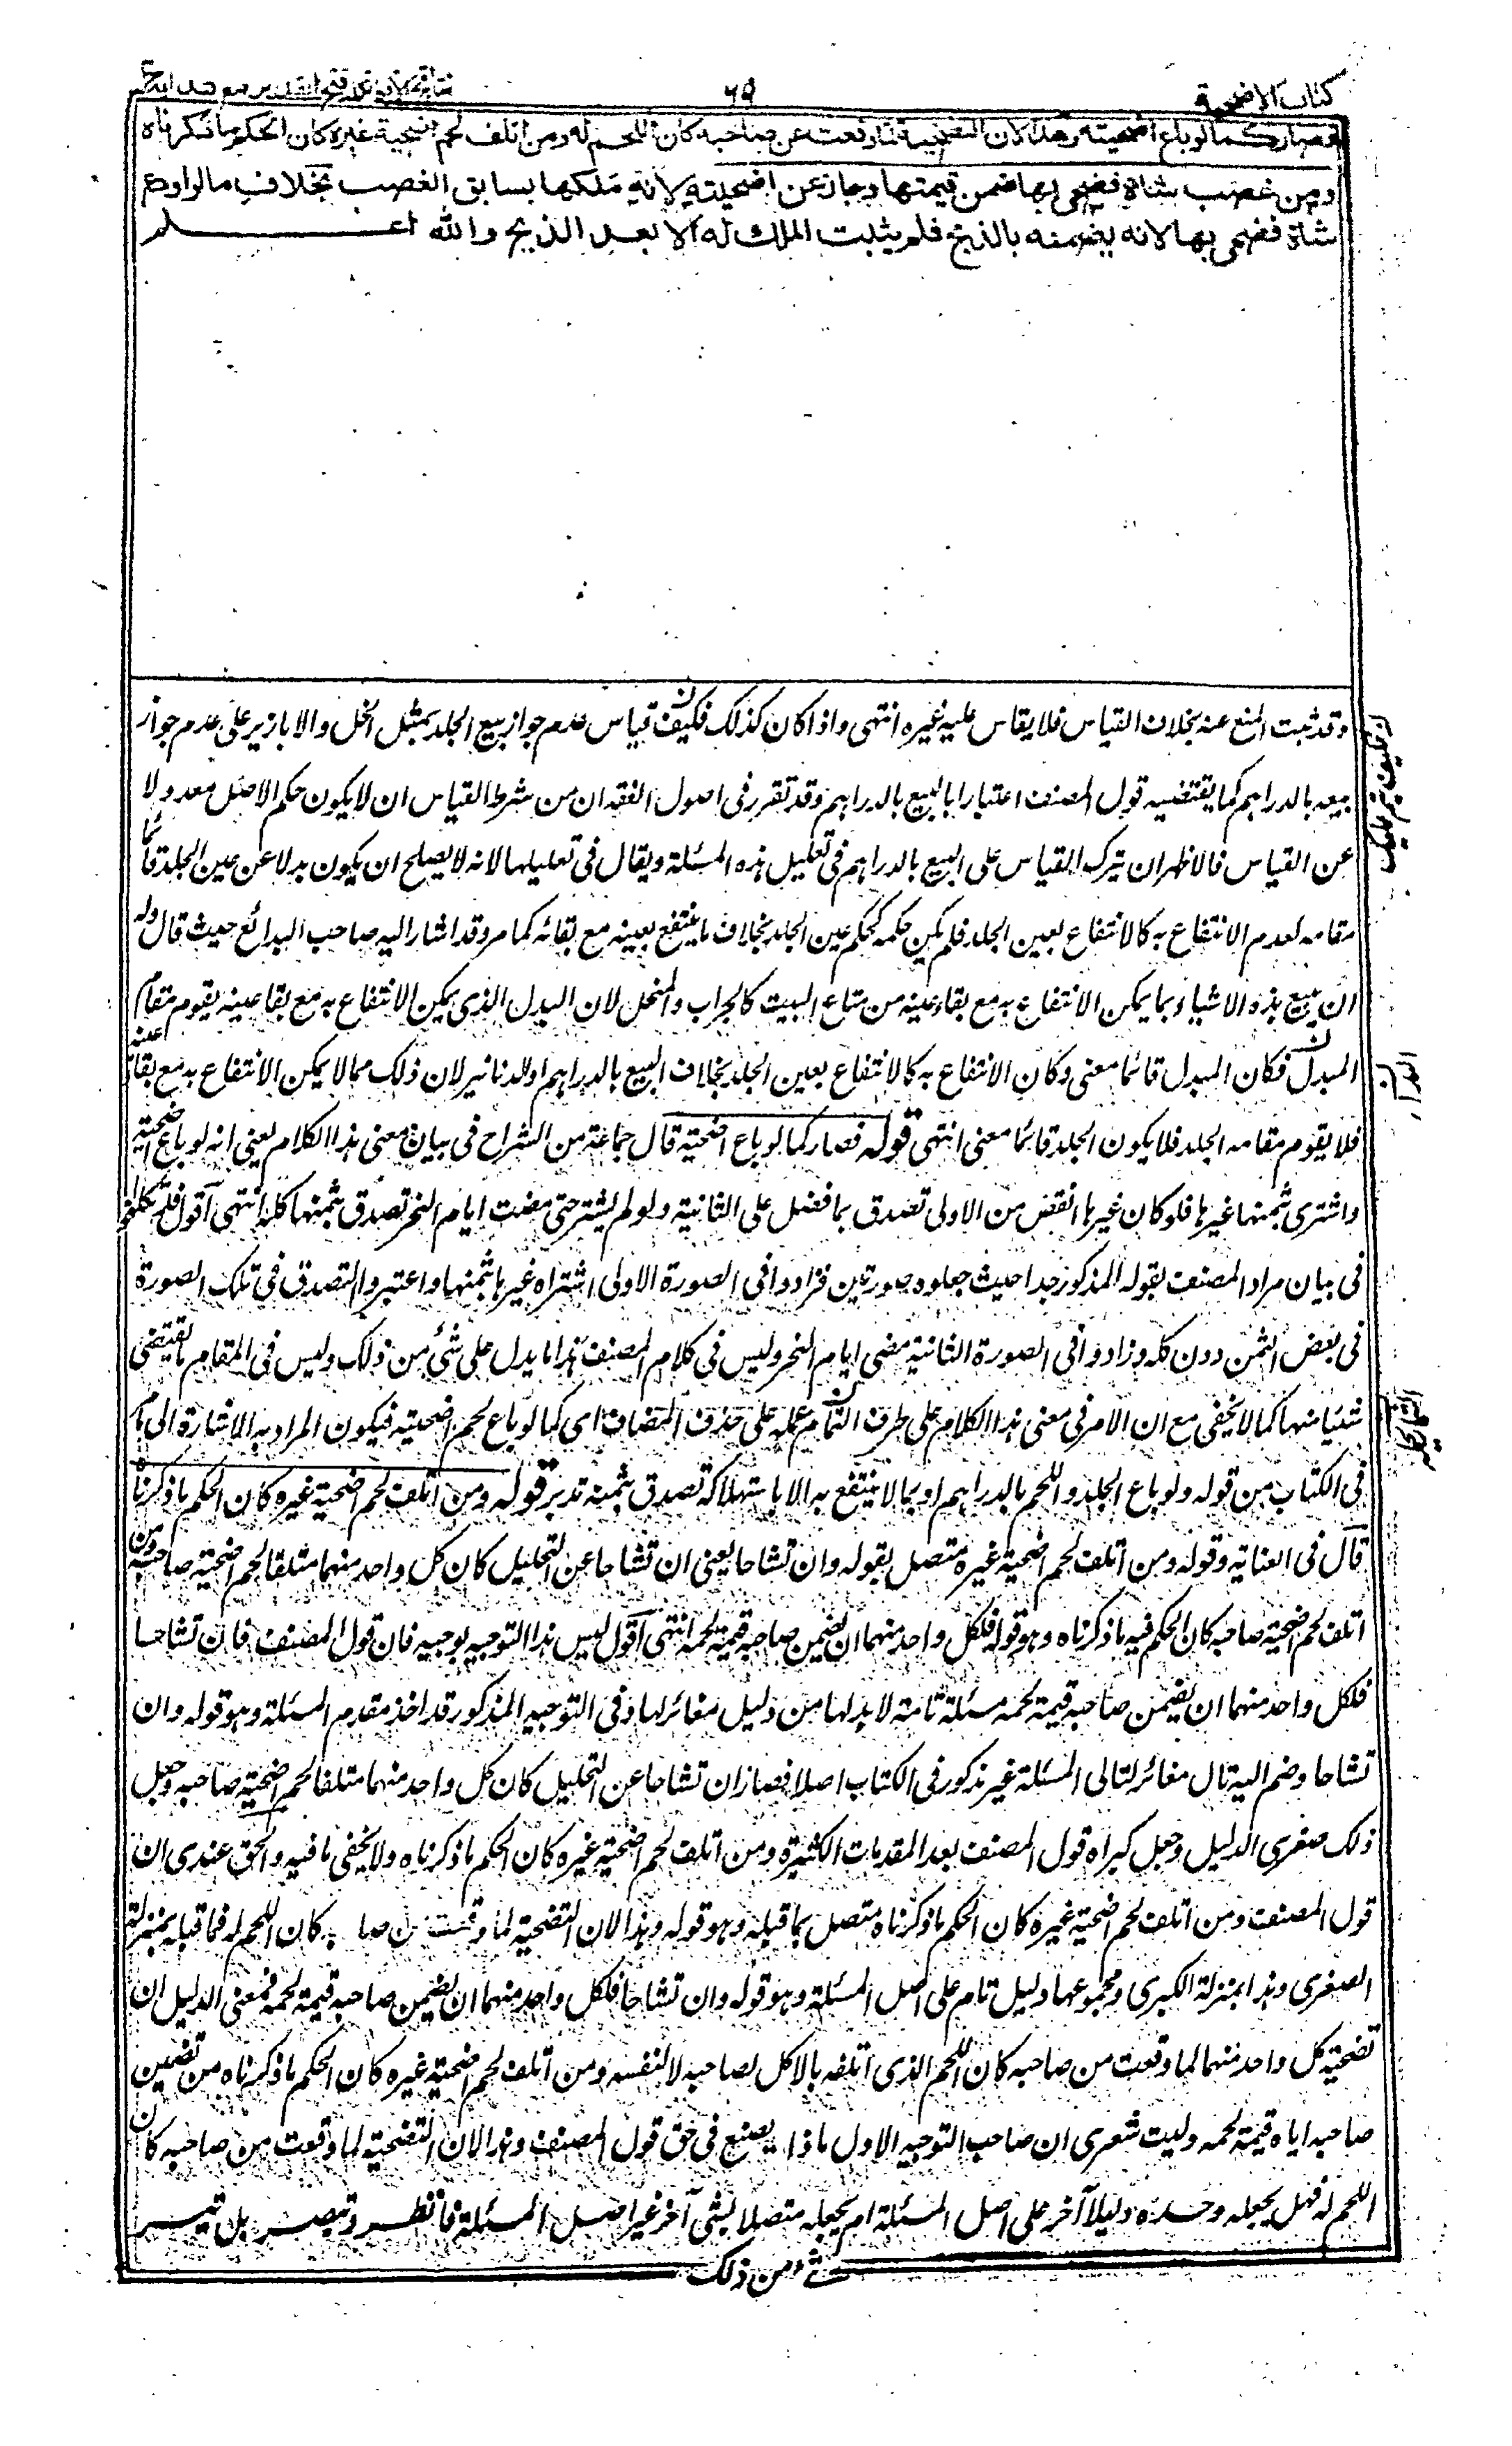 كتاب الاضحية
٦٩
فصار كما لو باع اضحيته وهذا لان التضحية لما وقعت عن صاحبه كان اللحم له ومن اتلف لحم اضحية غيره كان الحكم ما ذكرناه
ومن غصب شاة فضحى بها ضمن قيمتها وجاز عن اضحيته لانه ملكها بسابق الغصب بخلاف ما لو اودع
شاة فضحى بها لانه يضمنه بالذبح فلم يثبت الملك له الا بعد الذبح والله اعلم
وقد ثبت المنع عنه بخلاف القياس فلا يقاس عليه غيره انتهى واذا كان كذلك فكيف قياس عدم جواز بيع الجلد بمثل الخل والابازير على عدم جواز
بيعه بالدراهم كما يقتضيه قول المصنف اعتبارا بالبيع بالدراهم وقد تقرر فى اصول الفقه ان من شرط القياس ان لا يكون حكم الاصل معدولا
عن القياس فالاظهر ان يترك القياس على البيع بالدراهم فى تعليل هذه المسئلة ويقال فى تعليلها لانه لا يصلح ان يكون بدلا عن عين الجلد قائما
مقامه لعدم الانتفاع به كالانتفاع بعين الجلد فلم يكن حكمه كحكم عين الجلد بخلاف ما ينتفع بعينه مع بقائه كما مر وقد اشار اليه صاحب البدائع حيث قال وله
ان يبيع هذه الاشياء بما يمكن الانتفاع به مع بقاء عينه من متاع البيت كالجراب والمنخل لان البدل الذى يمكن الانتفاع به مع بقاء عينه يقوم مقام
المبدل فكان المبدل قائما معنى وكان الانتفاع به كالانتفاع بعين الجلد بخلاف البيع بالدراهم او الدنانير لان ذلك مما لا يمكن الانتفاع به مع بقاء عينه
فلا يقوم مقامه الجلد فلا يكون الجلد قائما معنى انتهى قوله فصار كما لو باع اضحيته قال جماعة من الشراح فى بيان معنى هذا الكلام يعنى انه لو باع اضحيته
واشترى بثمنها غيرها فلو كان غيرها انقص من الاولى تصدق بما فضل على الثانية ولو لم يشتر حتى مضت ايام النحر تصدق بثمنها كله انتهى اقول فلم تكلفوا
فى بيان مراد المصنف بقوله المذكور جدا حيث جعلوه صورتين فزادوا فى الصورة الاولى اشتراه غيرها بثمنها واعتبروا التصدق فى تلك الصورة
فى بعض الثمن دون كله وزادوا فى الصورة الثانية مضى ايام النحر وليس فى كلام المصنف هذا ما يدل على شئ من ذلك وليس فى المقام ما يقتضى
شيئا منها كما لا يخفى مع ان الامر فى معنى هذا الكلام على طرف الثمام عمله على حذف المضاف اى كما لو باع لحم اضحيته فيكون المراد به الاشارة الى ما
فى الكتاب من قوله ولو باع الجلد واللحم بالدراهم او بما لا ينتفع به الا باستهلاكه تصدق بثمنه تدبر قوله ومن اتلف لحم اضحية غيره كان الحكم ما ذكرناه
قال فى العناية وقوله ومن اتلف لحم اضحية غيره متصل بقوله وان تشاحا يعنى ان تشاحا عن التحليل كان كل واحد منهما متلفا لحم اضحية صاحبه ومن
اتلف لحم اضحية صاحبه كان الحكم فيه ما ذكرناه وهو قوله فلكل واحد منهما ان يضمن صاحبه قيمة لحمه انتهى اقول ليس هذا التوجيه بوجيه فان قول المصنف فان تشاحا
فلكل واحد منهما ان يضمن صاحبه قيمة لحمه مسئلة تامة لا بد لها من دليل مغائر لها وفى التوجيه المذكور قد اخذ مقدم المسئلة وهو قوله وان
تشاحا وضم اليه تال مغائر لتالى المسئلة غير مذكور فى الكتاب اصلا فصار ان تشاحا عن التحليل كان كل واحد منهما متلفا لحم اضحية صاحبه وجعل
ذلك صغرى الدليل وجعل كبراه قول المصنف بعد المقدمات الكثيرة ومن اتلف لحم اضحية غيره كان الحكم ما ذكرناه ولا يخفى ما فيه والحق عندى ان
قول المصنف ومن اتلف لحم اضحية غيره كان الحكم ما ذكرناه متصل بما قبله وهو قوله وهذا لان التضحية لما وقعت كان اللحم له فما قبله بمنزلة
الصغرى وهذا بمنزلة الكبرى ومجموعها دليل تام على اصل المسئلة وهو قوله وان تشاحا فلكل واحد منهما ان يضمن صاحبه قيمة لحمه فمعنى الدليل ان
تضحية كل واحد منهما لما وقعت من صاحبه كان اللحم الذى اتلفه بالاكل لصاحبه لا لنفسه ومن اتلف لحم اضحية غيره كان الحكم ما ذكرناه من تضمين
صاحبه اياه قيمة لحمه وليت شعرى ان صاحب التوجيه الاول ماذا يصنع فى حق قول المصنف وهذا لان التضحية لما وقعت من صاحبه كان
اللحم له فهل يجعله وحده دليلا آخر على اصل المسئلة ام يجعله متصلا بشئ آخر غير اصل المسئلة فانظر وتبصر بل تيسر
شئ من ذلك